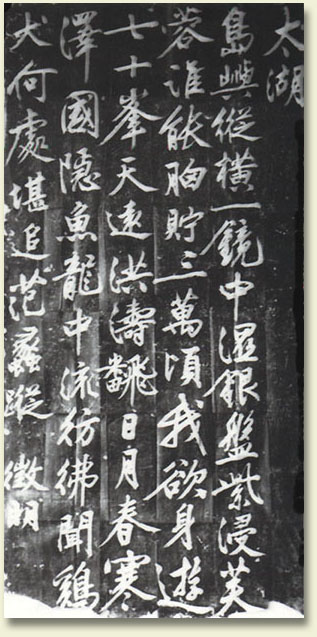 太湖
島嶼縱橫一鏡中濕銀盤紫浸芙
蓉誰能胸貯三萬頃我欲身遊
七十峯天遠洪濤飜日月春寒
澤國隱魚龍中流彷彿聞鷄
犬何處堪追范蠡蹤 徵明